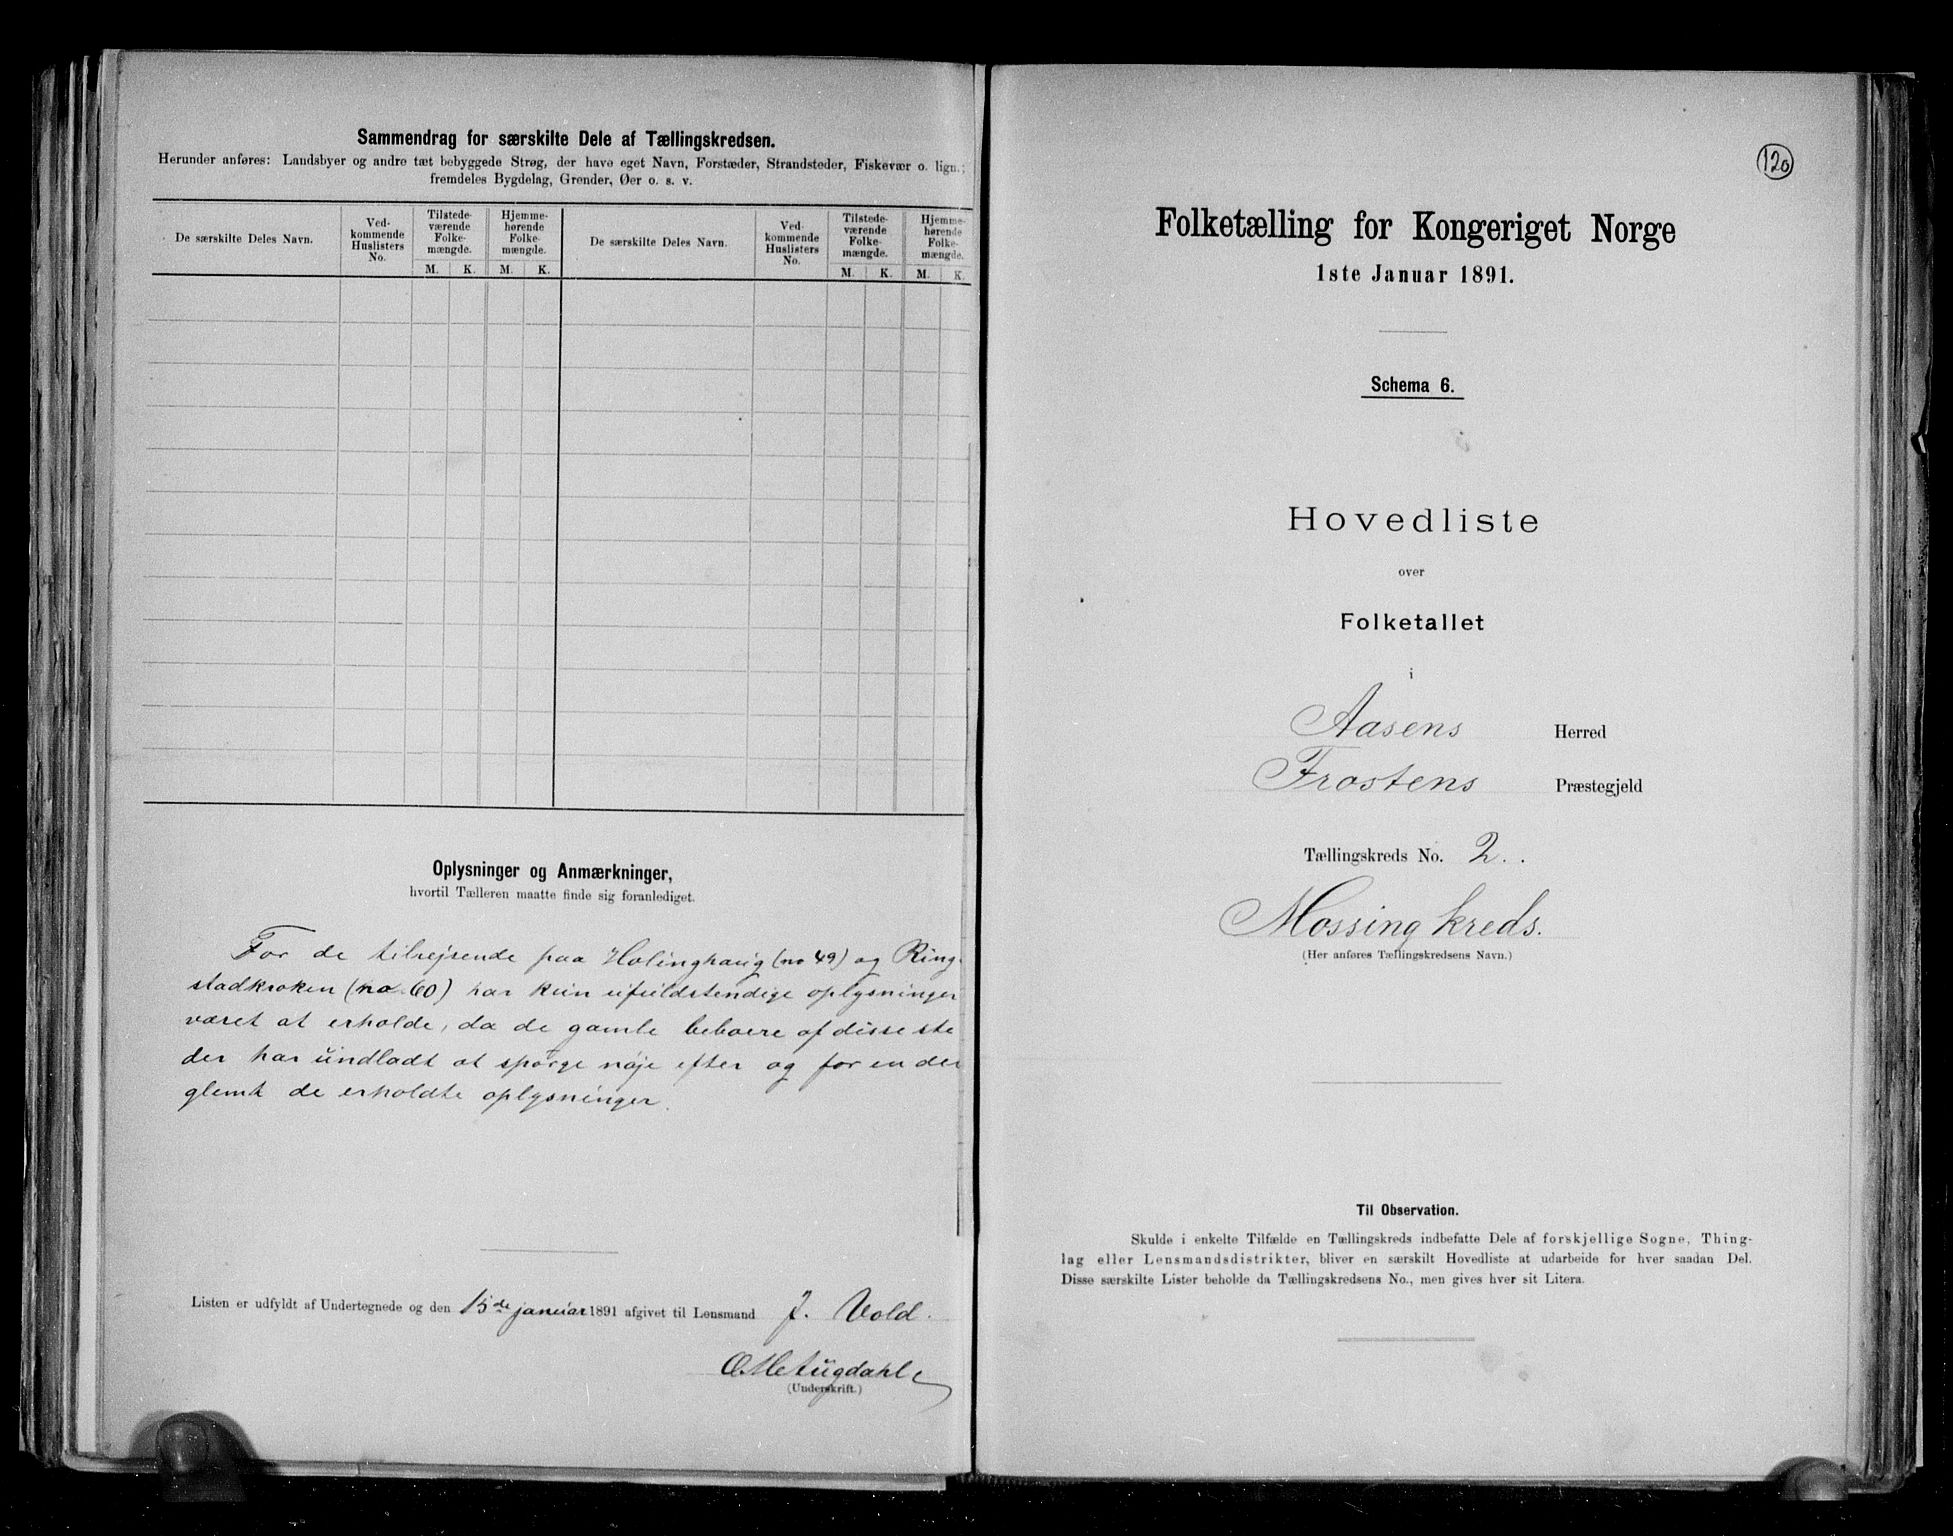 Sammendrag for særskilte Dele af Tællingskredsen.
Herunder anføres: Landsbyer og andre tæt bebyggede Strøg, der have eget Navn, Forstæder, Strandsteder, Fiskevær o. lign.;
fremdeles Bygdelag, Grender, Øer o. s. v.
De særskilte Deles Navn.
Ved-
kommende
Huslisters
No.
Tilstede-
værende
Folke-
mængde.
M. K.
Hjemme-
hørende
Folke-
mængde.
M. K.
De særskilte Deles Navn.
Ved-
kommende
Huslisters
No.
Tilstede-
værende
Folke-
mængde.
M. K.
Hjemme-
hørende
Folke-
mængde.
M. K.
Oplysninger og Anmærkninger,
hvortil Tælleren maatte finde sig foranlediget.
For de tilrejsende paa Holinghaug (no 49) og Ring-
stadkroken (no. 60) har kun ufuldstendige oplysninger
været at erholde, da de gamle beboere af disse ste
der har undladt at spørge nøje efter og for en del
glemt de erholdte oplysninger.
Listen er udfyldt af Undertegnede og den 15de januar 1891 afgivet til Lensmand J. Vold.
(Underskrift.)
120
Folketælling for Kongeriget Norge
1ste Januar 1891.
Schema 6.
Hovedliste
over
Folketallet
i
Aasens Herred
Frostens Præstegjeld
Tællingskreds No. 2.
Mossing kreds.
(Her anføres Tællingskredsens Navn.)
Til Observation.
Skulde i enkelte Tilfælde en Tællingskreds indbefatte Dele af forskjellige Sogne, Thing-
lag eller Lensmandsdistrikter, bliver en særskilt Hovedliste at udarbeide for hver saadan Del.
Disse særskilte Lister beholde da Tællingskredsens No., men gives hver sit Litera.